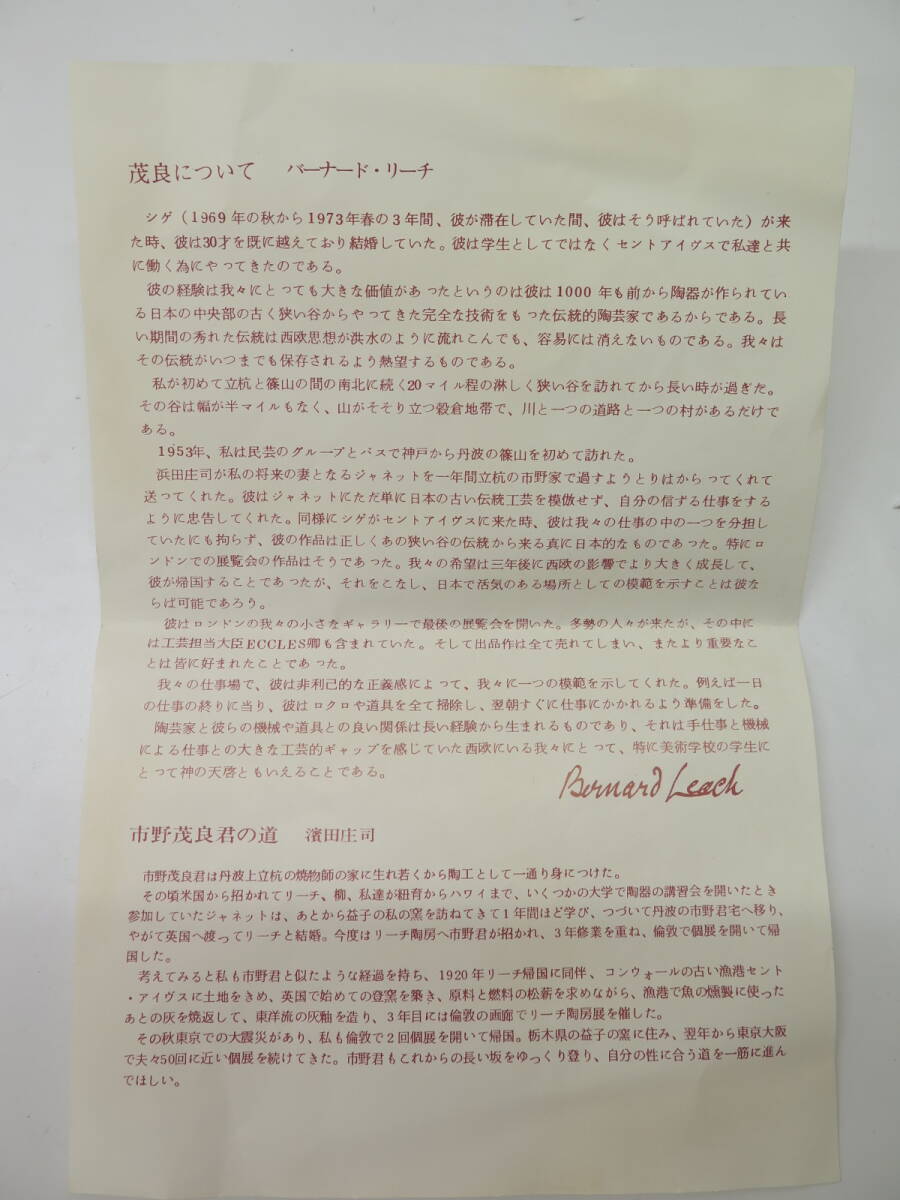 茂良について　バーナード・リーチ
シゲ（1969年の秋から1973年春の3年間、彼が滞在していた間、彼はそう呼ばれていた）が来
た時、彼は30才を既に越えており結婚していた。彼は学生としてではなくセントアイヴスで私達と共
に働く為にやってきたのである。
彼の経験は我々にとっても大きな価値があったというのは彼は1000年も前から陶器が作られてい
る日本の中央部の古く狭い谷からやってきた完全な技術をもった伝統的陶芸家であるからである。長
い期間の秀れた伝統は西欧思想が洪水のように流れこんでも、容易には消えないものである。我々は
その伝統がいつまでも保存されるよう熱望するものである。
私が初めて立杭と篠山の間の南北に続く20マイル程の淋しく狭い谷を訪れてから長い時が過ぎた。
その谷は幅が半マイルもなく、山がそそり立つ穀倉地帯で、川と一つの道路と一つの村があるだけで
ある。
1953年、私は民芸のグループとバスで神戸から丹波の篠山を初めて訪れた。
浜田庄司が私の将来の妻となるジャネットを一年間立杭の市野家で過すようとりはからってくれて
送ってくれた。彼はジャネットにただ単に日本の古い伝統工芸を模倣せず、自分の信ずる仕事をする
ように忠告してくれた。同様にシゲがセントアイヴスに来た時、彼は我々の仕事の中の一つを分担し
ていたにも拘らず、彼の作品は正しくあの狭い谷の伝統から来る真に日本的なものであった。特にロ
ンドンでの展覧会の作品はそうであった。我々の希望は三年後に西欧の影響でより大きく成長して、
彼が帰国することであったが、それをこなし、日本で活気のある場所としての模範を示すことは彼な
らば可能であろう。
彼はロンドンの我々の小さなギャラリーで最後の展覧会を開いた。多勢の人々が来たが、その中に
は工芸担当大臣ECCLES卿も含まれていた。そして出品作は全て売れてしまい、またより重要なこ
とは皆に好まれたことであった。
我々の仕事場で、彼は非利己的な正義感によって、我々に一つの模範を示してくれた。例えば一日
の仕事の終りに当り、彼はロクロや道具を全て掃除し、翌朝すぐに仕事にかかれるよう準備をした。
陶芸家と彼らの機械や道具との良い関係は長い経験から生まれるものであり、それは手仕事と機械
による仕事との大きな工芸的ギャップを感じていた西欧にいる我々にとって、特に美術学校の学生に
とって神の天啓ともいえることである。
Bernard Leach
市野茂良君の道　濱田庄司
市野茂良君は丹波上立杭の焼物師の家に生れ若くから陶工として一通り身につけた。
その頃米国から招かれてリーチ、柳、私達が紐育からハワイまで、いくつかの大学で陶器の講習会を開いたとき
参加していたジャネットは、あとから益子の私の窯を訪ねてきて1年間ほど学び、つづいて丹波の市野君宅へ移り、
やがて英国へ渡ってリーチと結婚。今度はリーチ陶房へ市野君が招かれ、3年修業を重ね、倫敦で個展を開いて帰
国した。
考えてみると私も市野君と似たような経過を持ち、1920年リーチ帰国に同伴、コンウォールの古い漁港セント
・アイヴスに土地をきめ、英国で始めての登窯を築き、原料と燃料の松薪を求めながら、漁港で魚の燻製に使った
あとの灰を焼返して、東洋流の灰釉を造り、3年目には倫敦の画廊でリーチ陶房展を催した。
その秋東京での大震災があり、私も倫敦で2回個展を開いて帰国。栃木県の益子の窯に住み、翌年から東京大阪
で夫々50回に近い個展を続けてきた。市野君もこれからの長い坂をゆっくり登り、自分の性に合う道を一筋に進ん
でほしい。